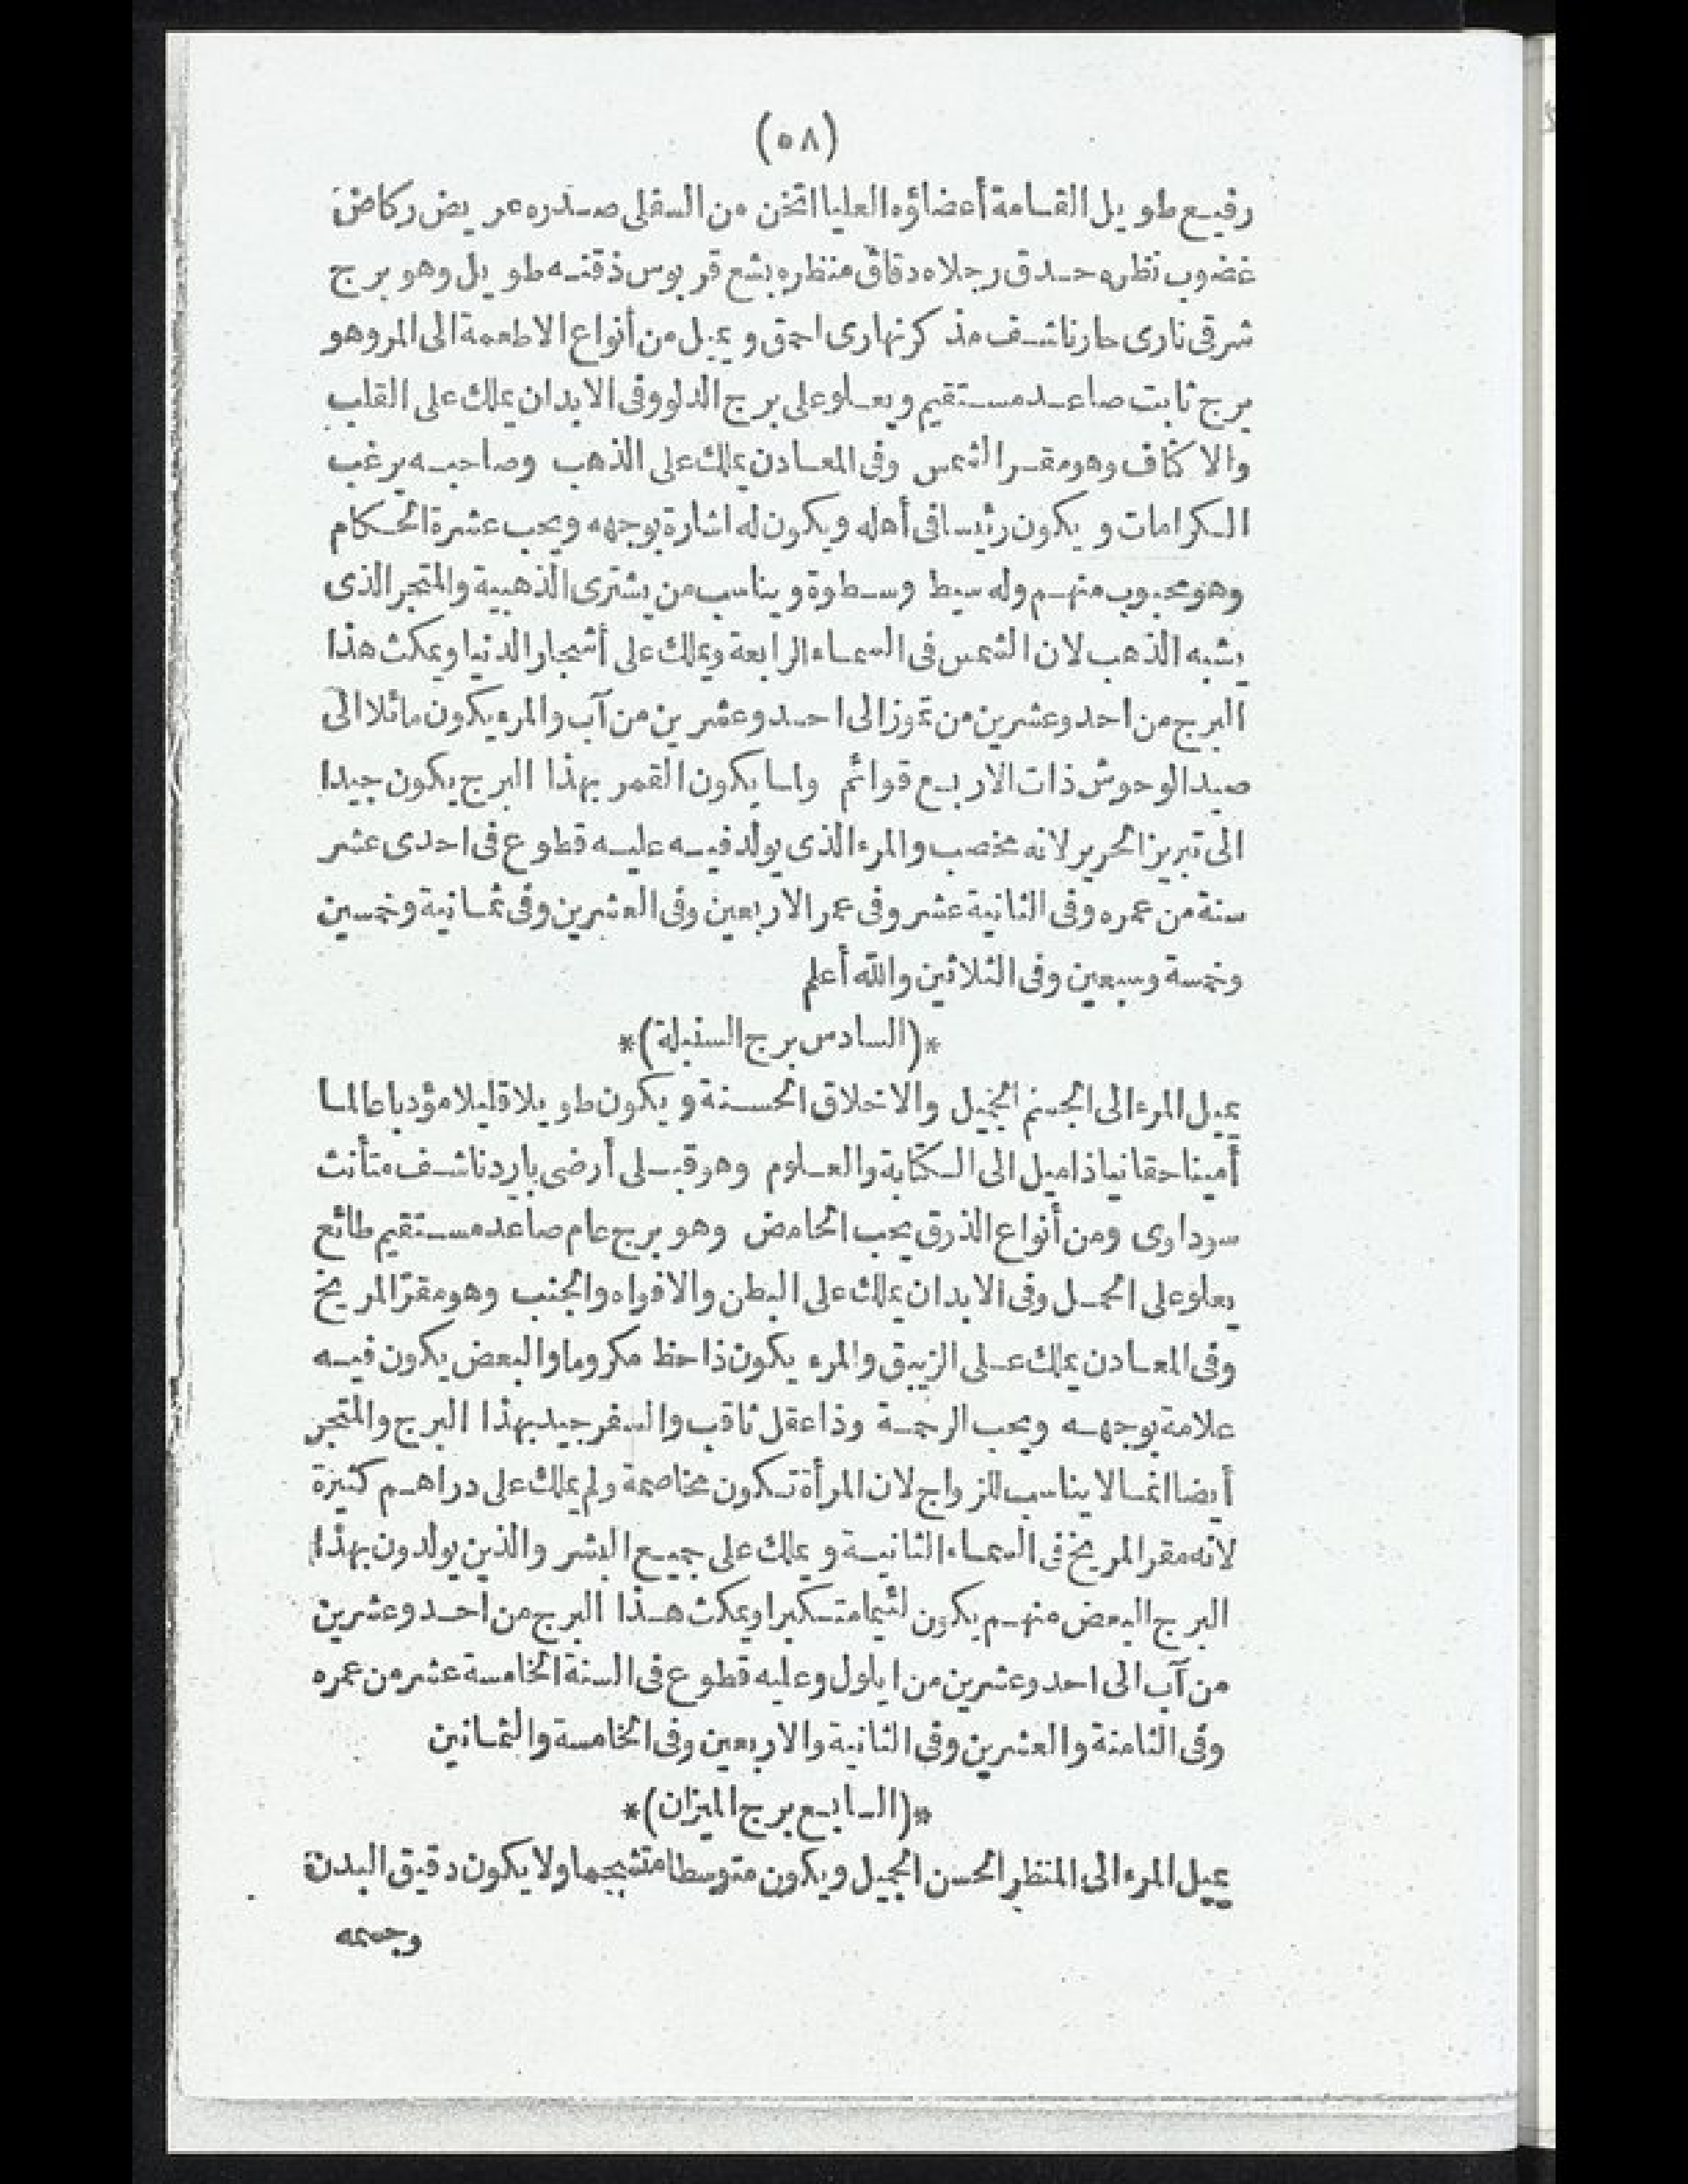 (٥٨)
رفيع طويل القامة أعضاؤه العليا اتخن من السفلى صدره عريض ركاض
غضوب نظره حدق رجلاه دقاق منظره بشع قربوس ذقنه طويل وهو برج
شرقى نارى حار ناشف مذكر نهارى احمق ويميل من أنواع الاطعمة الى المر وهو
برج ثابت صاعد مستقيم ويعلو على برج الدلو وفى الابدان يملك على القلب
والاكتاف وهو مقر الشمس وفى المعادن يملك على الذهب وصاحبه يرغب
الكرامات ويكون رئيسا فى أهله ويكون له اشارة بوجهه ويحب عشرة الحكام
وهو محبوب منهم وله سيط وسطوة ويناسب من يشترى الذهبية والمتجر الذى
يشبه الذهب لان الشمس فى السماء الرابعة ويملك على أشجار الدنيا ويمكث هذا
البرج من احد وعشرين من تموز الى احد وعشرين من آب والمرء يكون مائلا الى
صيد الوحوش ذات الاربع قوائم ولما يكون القمر بهذا البرج يكون جيدا
الى تبريز الحرير لانه مخصب والمرء الذى يولد فيه عليه قطوع فى احدى عشر
سنة من عمره وفى الثانية عشر وفى عمر الاربعين وفى العشرين وفى ثمانية وخمسين
وخمسة وسبعين وفى الثلاثين والله أعلم
*(السادس برج السنبلة)*
يميل المرء الى الجسم الجميل والاخلاق الحسنة ويكون طويلا قليلا مؤدبا عالما
أمينا حقانيا ذا ميل الى الكتابة والعلوم وهو قبلى أرضى بارد ناشف متأنث
سوداوى ومن أنواع الذوق يحب الحامض وهو برج عام صاعد مستقيم طائع
يعلو على الحمل وفى الابدان يملك على البطن والافواه والجنب وهو مقر المريخ
وفى المعادن يملك على الزيبق والمرء يكون ذا حظ مكروما والبعض يكون فيه
علامة بوجهه ويحب الرحمة وذا عقل ثاقب والسفر جيد بهذا البرج والمتجر
أيضا انما لا يناسب للزواج لان المرأة تكون مخاصمة ولم يملك على دراهم كثيرة
لانه مقر المريخ فى السماء الثانية ويملك على جميع البشر والذين يولدون بهذا
البرج البعض منهم يكون لئيما متكبرا ويمكث هذا البرج من احد وعشرين
من آب الى احد وعشرين من ايلول وعليه قطوع فى السنة الخامسة عشر من عمره
وفى الثامنة والعشرين وفى الثانية والاربعين وفى الخامسة والثمانين
*(السابع برج الميزان)*
يميل المرء الى المنظر الحسن الجميل ويكون متوسطا ولا يكون دقيق البدن
وجسمه